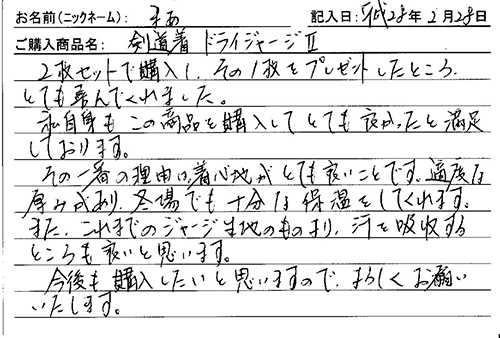 お名前(ニックネーム): まぁ 記入日: 平成28年2月28日
ご購入商品名: 剣道着 ドライジャージⅡ
2枚セットで購入し、その1枚をプレゼントしたところ、
とても喜んでくれました。
私自身もこの商品を購入してとても良かったと満足
しております。
その一番の理由は着心地がとても良いことです。適度な
厚みがあり、冬場でも十分な保温をしてくれます。
また、これまでのジャージ生地のものより、汗を吸収する
ところも良いと思います。
今後も購入したいと思いますので、よろしくお願い
いたします。